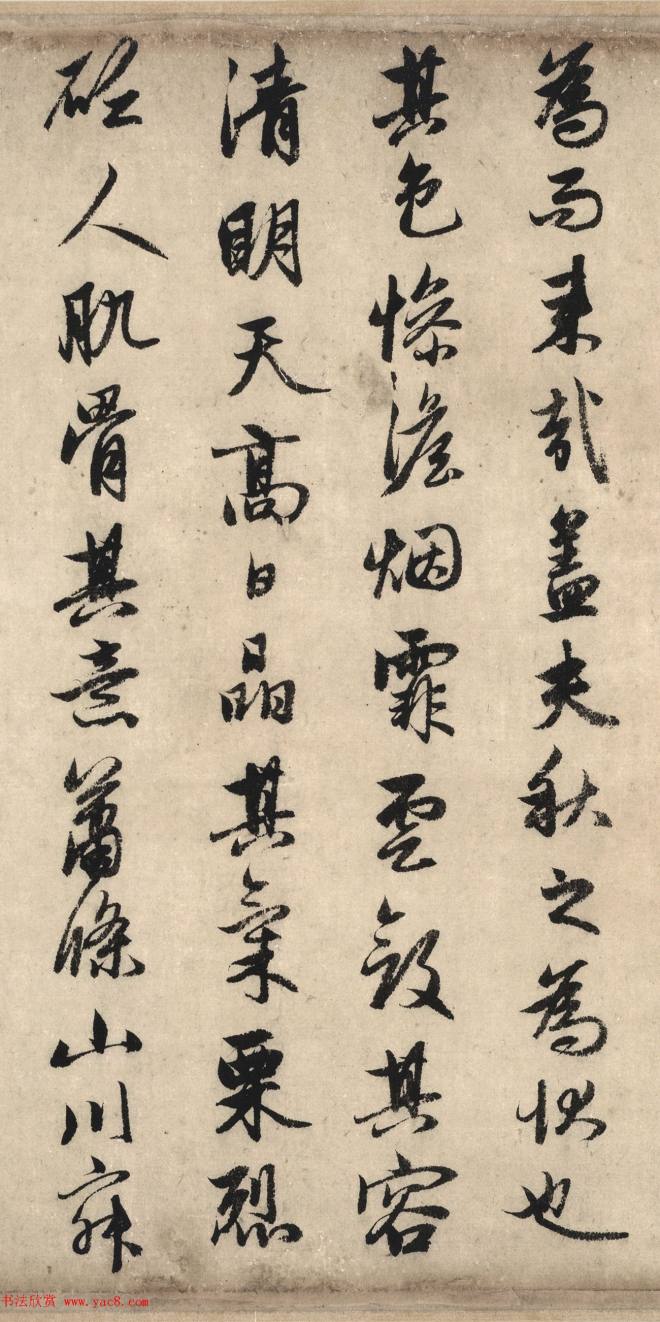 為而来哉盖夫秋之為狀也
其色慘澹烟霏雲斂其容
清明天高日晶其氣栗烈
砭人肌骨其意蕭條山川寂
书法欣赏 www.yac8.com